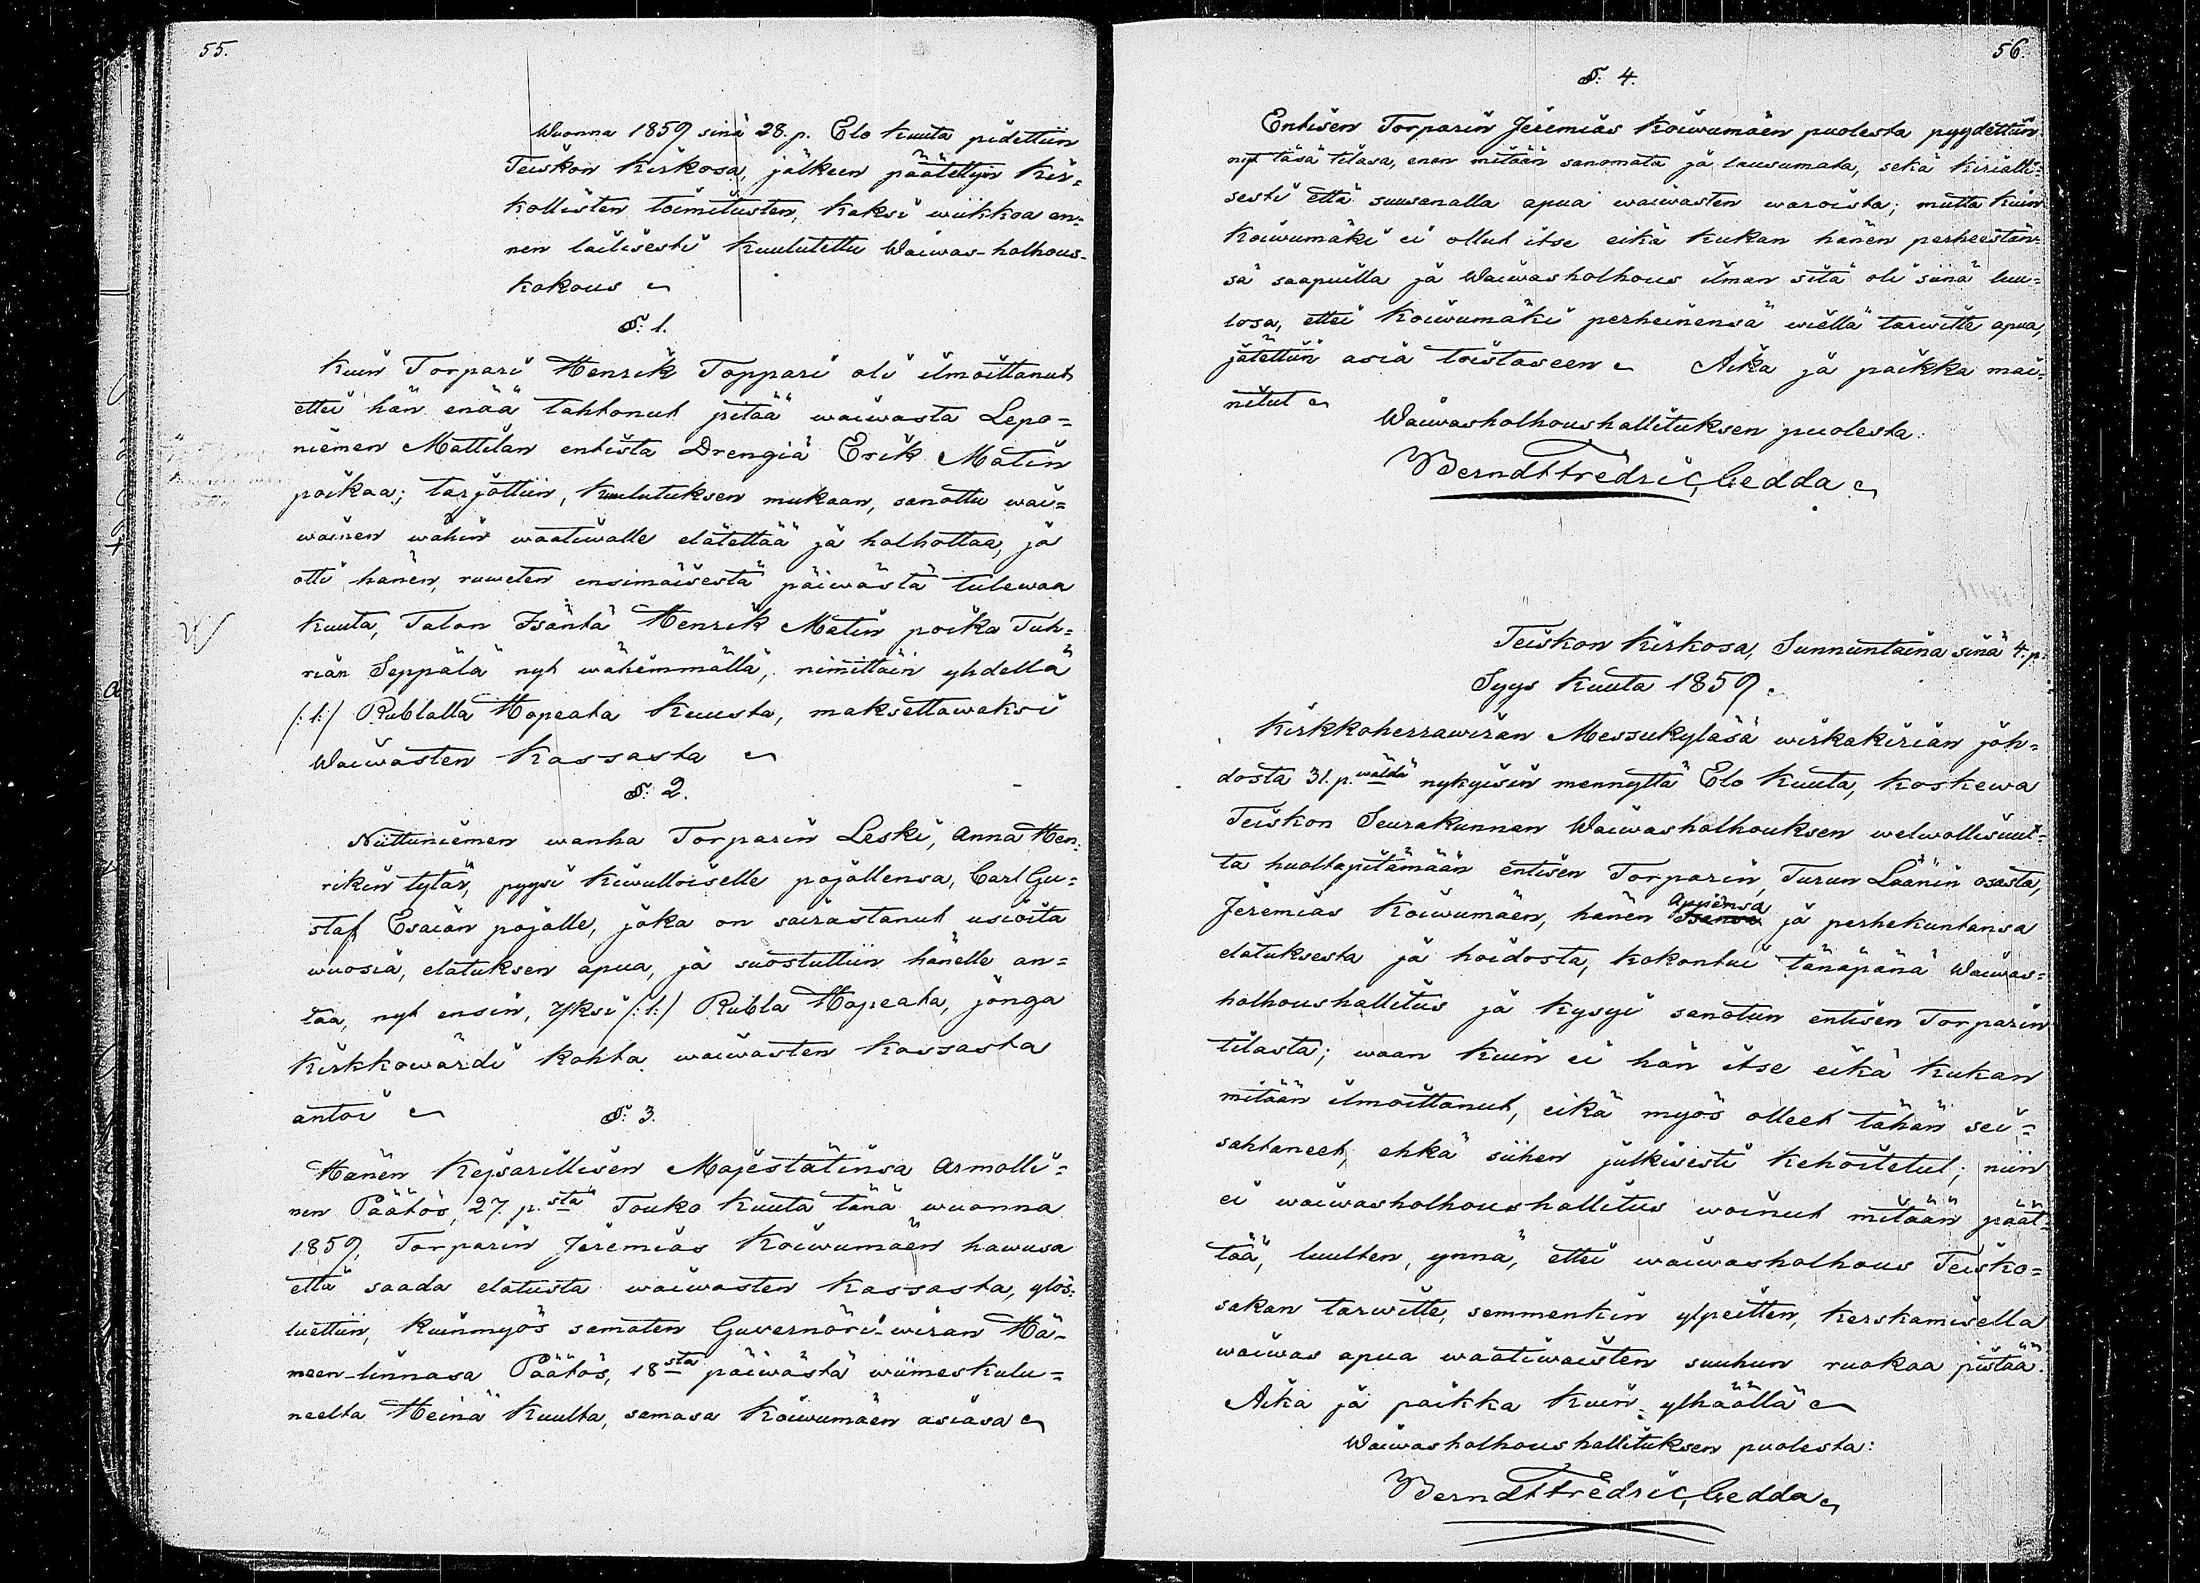 55.
Wuonna 1859 sinä 28. p. Elo kuuta pidettiin
Teiskon kirkosa, jälkeen päätettyin kir=
kollisten toimitusten, kaksi wiikkoa en=
nen laillisesti kuulutettu Waiwas-holhous-
kokous
§. 1.
Kuin Torpari Henrik Toppari oli ilmoittanut
ettei hän enää tahtonut pitää waiwasta Lepo=
niemen Mattilan entistä Drengiä Erik Matin
poikaa; tarjottiin, kuulutuksen mukaan, sanottu wai=
wainen wähin waatiwalle elätettää ja holhottaa, ja
otti hänen, ruweten ensimäisestä päiwästä tulewaa
kuuta, Talon Isäntä Henrik Matin poika Tuh=
riän Seppälä nyt wähemmällä, nimittäin yhdellä
/:1:/ Rublalla Hopeata kuusta, maksettawaksi
Waiwasten kassasta
§. 2.
Niittuniemen wanha Torparin Leski, Anna Hen=
rikin tytär, pyysi kiwulloiselle pojallensa, Carl Gu=
staf Esaian pojalle, joka on sairastanut usioita
wuosia, elatuksen apua, ja suostuttiin hänelle an=
taa, nyt ensin, Yksi /:1:/ Rubla Hopeata, jonga
kirkkowärdi kohta waiwasten kassasta
antoi
§. 3.
Hänen Kejsarillisen Majestätinsa Armolli=
nen Päätös, 27. p.stä Touko kuuta tänä wuonna
1859, Torparin Jeremias Koiwumäen hawusa
että saada elatusta waiwasten kassasta, ylös=
luettiin, kuinmyös samaten Guvernöri-wiran Hä-
meen-linnasa Päätös, 18sta päiwästä wiimeskulu=
neelta Heinä kuulta, samasa Koiwumäen asiasa
56.
§. 4.
Entisen Torparin Jeremias Koiwumäen puolesta pyydettiin
nyt täsä tilasa, enen mitään sanomata ja lausumata, sekä kirialli=
sesti että suusanalla apua waiwasten waroista; mutta kuin
Koiwumäki ei ollut itse eikä kukan hänen perheestän=
sä saapuilla ja Waiwasholhous ilman sitä oli siinä luu=
losa, ettei Koiwumäki perheinensä wiellä tarwitte apua,
jätettiin asia toistaseen Aika ja paikka mai=
nitut
Waiwasholhoushallituksen puolesta:
Berndt Fredric Gedda
Teiskon kirkosa, Sunnuntaina sinä 4. p.
Syys kuuta 1859.
Kirkkoherrawiran Messukyläsä wirkakirian joh=
dosta 31. p.wäldä nykyisin mennyttä Elo kuuta, koskewa
Teiskon Seurakunnan Waiwasholhouksen welwollisuut=
ta huoltapitämään entisen Torparin, Turun Läänin osasta,
Jeremias Koiwumäen, hänen Appiensa ja perhekuntansa
elatuksesta ja hoidosta, kokontui tänäpänä Waiwas=
holhoushallitus ja kysyi sanotun entisen Torparin
tilasta; waan kuin ei hän itse eikä kukan
mitään ilmoittanut, eikä myös olleet tähän sei=
sahtaneet, ehkä siihen julkisesti kehoitetut; niin
ei waiwasholhoushallitus woinut mitään päät=
tää, luulten, ynnä, ettei waiwasholhous Teisko=
sakan tarwitte, semmenkin ylpeitten, kerskamisella
waiwas apua waatiwaisten suuhun ruokaa pistää.
Aika ja paikka kuin ylhäällä
Waiwasholhoushallituksen puolesta:
Berndt Fredric Gedda